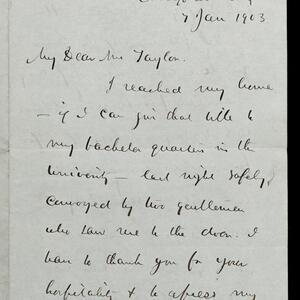 7 Jan 1903
My Dear Mr Taylor.
I reached my home
— if I can give that title to
my bachelor quarters in the
University — last night safely,
convoyed by two gentlemen
who saw me to the door. I
have to thank you for your
hospitality & to express my